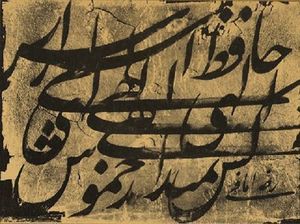 حافظ اسرار
الهی
کس نمیداند خموش